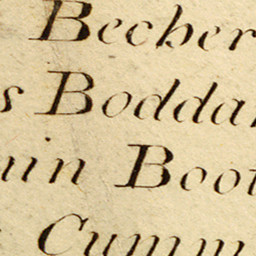 Becher
s Boddan
nin Boot
Cumm